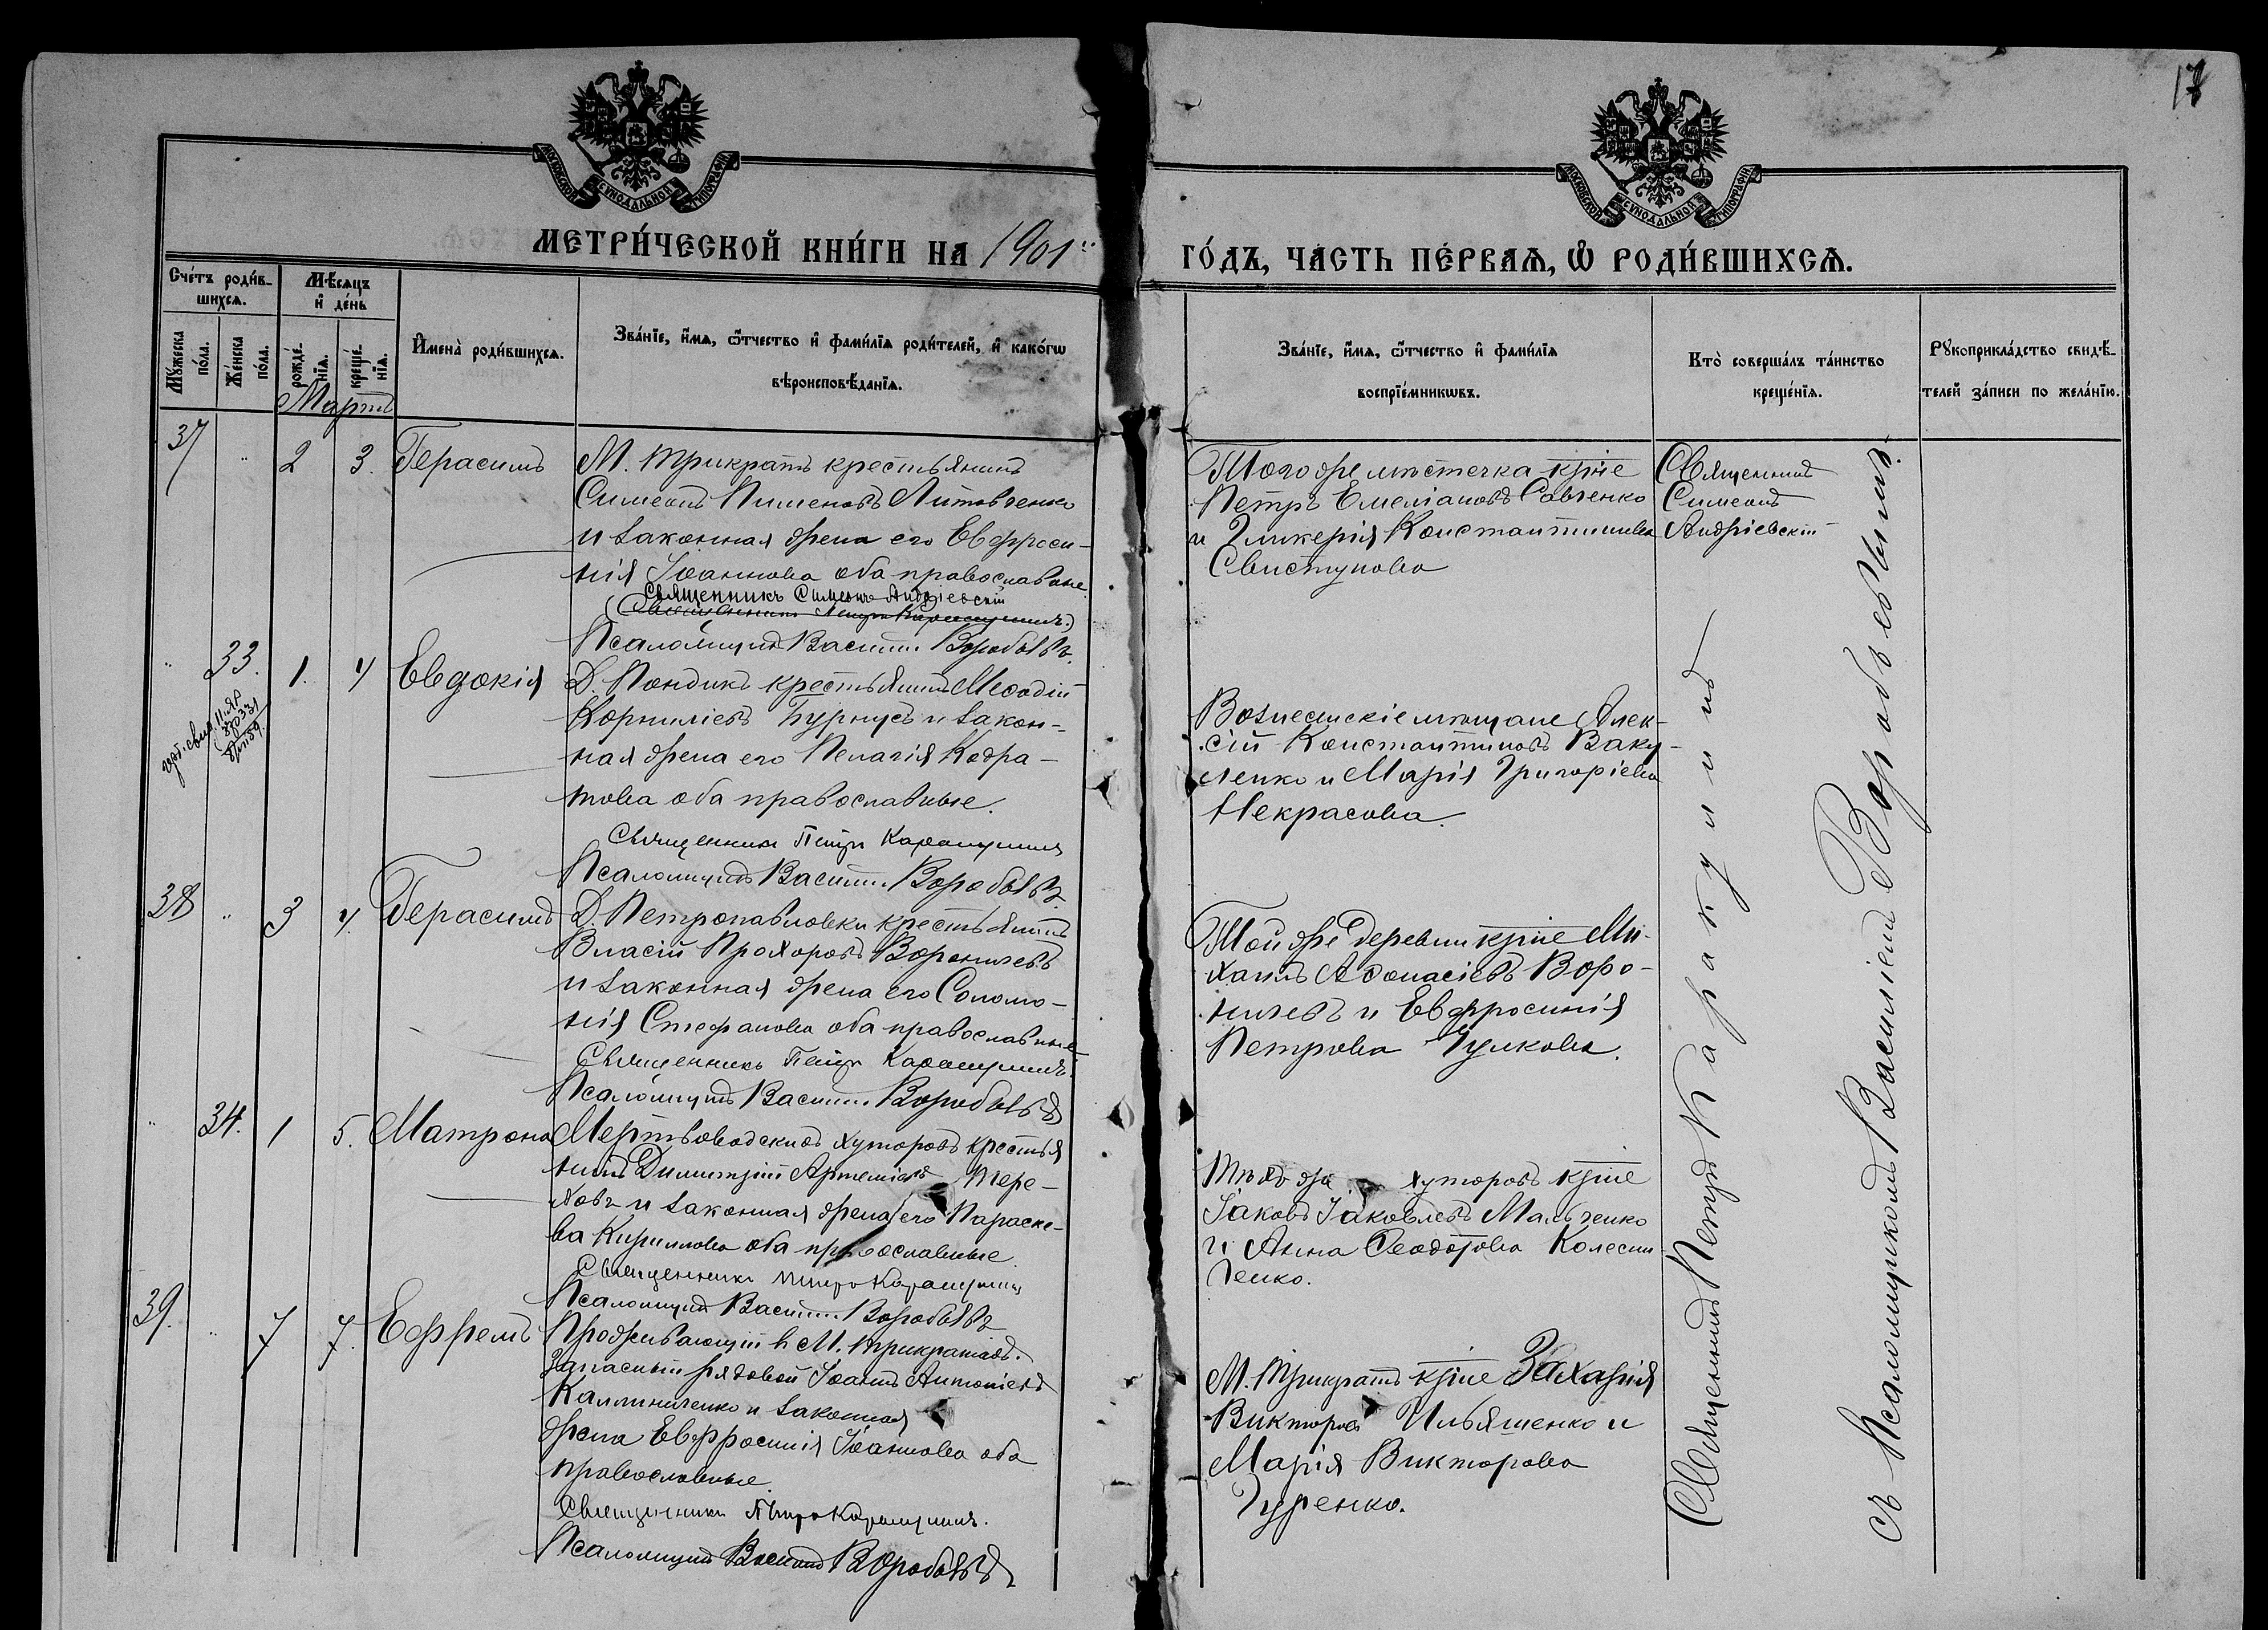 17
МОСКОВСКОЙ СУНОДАЛЬНОЙ ТИПОГРАФІИ
МОСКОВСКОЙ СУНОДАЛЬНОЙ ТИПОГРАФІИ
МЕТРИ́ЧЕСКОЙ КНИ́ГИ НА 1901
ГО́ДЪ, ЧА́СТЬ ПЕ́РВАѦ, Ѡ РОДИ́ВШИХСѦ.
Сче́тъ роди́в-
шихсѧ.
Мѣ́сѧцъ
и҆ де́нь
Мꙋ́жеска
по́ла.
Же́нска
по́ла.
рожде́-
нїѧ.
креще́-
нїѧ.
И҆мена̀ роди́вшихсѧ.
Зва́нїе, и҆́мѧ, ѻ҆́тчество и҆ фами́лїѧ роди́телей, и҆ како́гѡ
вѣроисповѣ́данїѧ.
Зва́нїе, и҆́мѧ, ѻ҆́тчество и҆ фами́лїѧ
воспрїе́мникѡвъ.
Кто̀ соверша́лъ та́инство
креще́нїѧ.
Рꙋкоприкла́дство свидѣ́-
телей за́писи по жела́нїю.
Мартъ
37 " 2 3. Герасимъ
М. Трикратъ крестьянинъ
Симеонъ Пименовъ Литовченко
и законная жена его Евфроси-
нія Іоаннова оба православные
Священникъ Симеонъ Андріевскій
Псаломщикъ Василій Воробьевъ.
Того же мѣстечка кр҃не
Петръ Емеліановъ Савченко
и Гликерія Константинова
Свистунова
Священникъ
Симеонъ
Андріевскій
" 33. 1. 4 Евдокія
Д. Пондикъ крестьянинъ Меѳодій
Корниліевъ Бурнусъ и закон-
ная жена его Пелагія Кодра-
това оба православные.
Священникъ Петръ Каракулинъ
Псаломщикъ Василій Воробьевъ
Вознесенскіе мѣщане Алек-
сій Константиновъ Ваку-
ленко и Марія Григоріева
Некрасова.
38 " 3 4. Герасимъ
Д. Петропавловки крестьянинъ
Власій Прохоровъ Вороничевъ
и законная жена его Соломо-
нія Стефанова оба православные
Священникъ Петръ Каракулинъ.
Псаломщикъ Василій Воробьевъ
Той же деревни кр҃не Ми-
хаилъ Аѳонасіевъ Воро-
ничевъ и Евфросинія
Петрова Чулкова.
" 34. 1 5. Матрона
Мертвоводскихъ хуторовъ крестья
нинъ Димитрій Артеміевъ Тере-
ховъ и законная жена его Параске-
ва Кириллова оба православные.
Священникъ Петръ Каракулинъ
Псаломщикъ Василій Воробьевъ
Тѣхъ же хуторовъ кр҃не
Іаковъ Іаковлевъ Мальченко
и Анна Ѳеодотова Колесни
ченко.
39. " 7 7. Ефремъ
Проживающій в М. Трикратахъ.
запасный рядовой Іоаннъ Антоніевъ
Калиниченко и законная
жена Евфросинія Іоаннова оба
православные.
Священникъ Петръ Каракулинъ.
Псаломщикъ Василій Воробьевъ
М. Трикратъ кр҃не Захарія
Викторовъ Ильяшенко и
Марія Викторова
Гуренко.
Священникъ Петръ Каракулинъ
съ Псаломщикомъ Василіемъ Воробьевымъ.